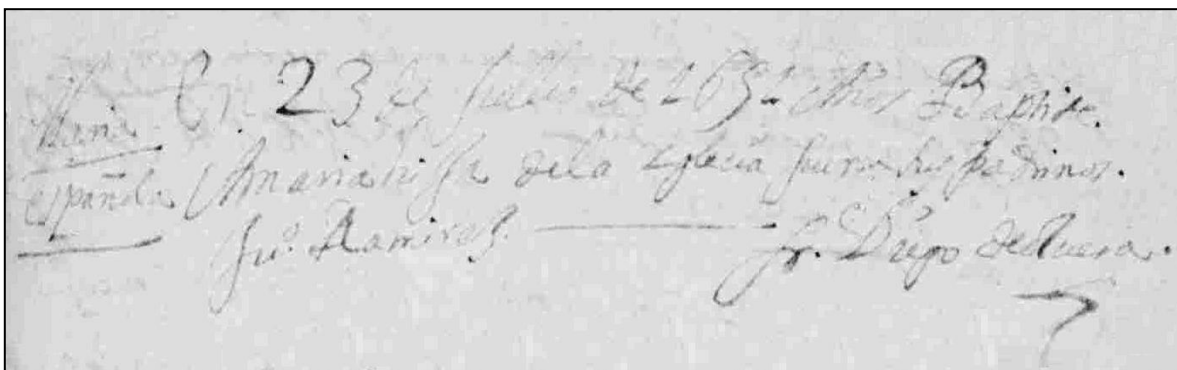 Maria
española
En 23 de Jullio de 1652 Años Baptise.
a Maria hija dela Yglecia fueron sus padrinos.
Juº. Ramires. Fr. Diego de